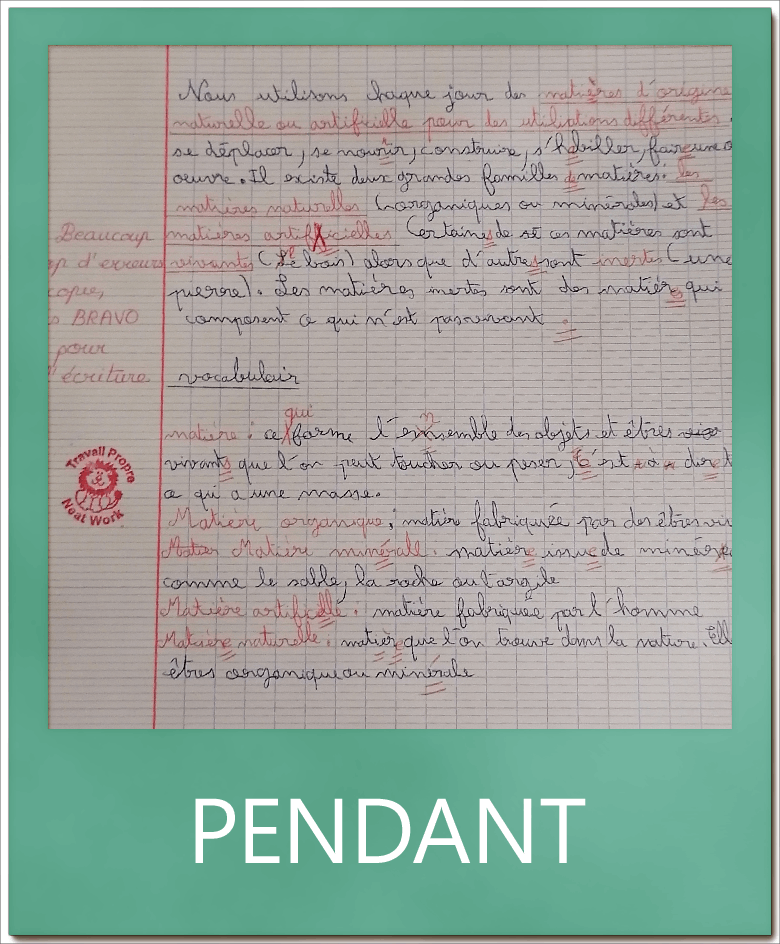 Nous utilisons chaque jour des matières d'origine
naturelle ou artificielle pour des utilisations différentes.
se déplacer, se nourir, construire, s'habiller, faire une
oeuvre. Il existe deux grandes familles de matières: les
matières naturelles (organiques ou minérales) et les
Beaucoup
matières artificielles Certaines de ces matières sont
d'erreurs
vivantes (le bois) alors que d'autres sont inertes (une
copie,
pierre). Les matières inertes sont des matières qui
BRAVO
composent ce qui n'est pas vivant
pour
l'écriture
vocabulair
qui
matière: ce forme l'ensemble des objets et êtres
n
vivants que l'on peut toucher ou peser, c'est à dire
ce qui a une masse.
Travail Propre
Neat Work
Matière organique: matière fabriquée par des êtres
Matière minérale: matière issue de
comme le sable, la roche ou l'argile
Matière artificielle: matière fabriquée par l'homme
Matière naturelle: matière que l'on trouve dans la nature.
êtres organique ou minérale
PENDANT